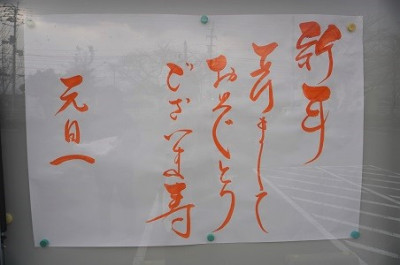 新年
あけまして
おめでとう
ございま寿
元旦